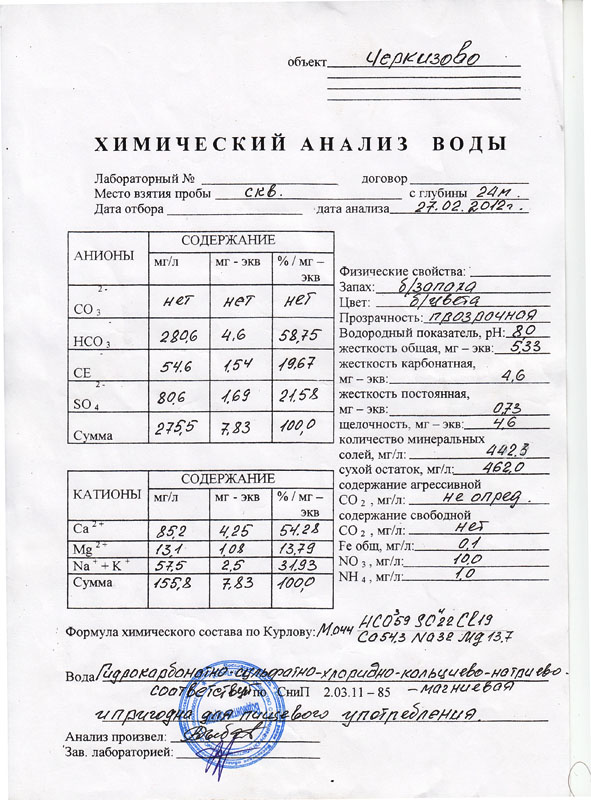 объект Черкизово
ХИМИЧЕСКИЙ АНАЛИЗ ВОДЫ
Лабораторный № договор
Место взятия пробы скв. с глубины 24м.
Дата отбора дата анализа 27.02.2012г.
АНИОНЫ СОДЕРЖАНИЕ
мг/л мг - экв % / мг – экв
CO 3 2- нет нет нет
HCO 3 - 280,6 4,6 58,75
CE - 54,6 1,54 19,67
SO 4 2- 80,6 1,69 21,58
Сумма 275,5 7,83 100,0
КАТИОНЫ СОДЕРЖАНИЕ
мг/л мг - экв % / мг – экв
Ca 2+ 85,2 4,25 54,28
Mg 2+ 13,1 1,08 13,79
Na + + K + 57,5 2,5 31,93
Сумма 155,8 7,83 100,0
Физические свойства:
Запах: б/запаха
Цвет: б/цвета
Прозрачность: прозрачная
Водородный показатель, pH: 8,0
жесткость общая, мг – экв: 5,33
жесткость карбонатная,
мг – экв: 4,6
жесткость постоянная,
мг – экв: 0,73
щелочность, мг – экв: 4,6
количество минеральных
солей, мг/л: 442,3
сухой остаток, мг/л: 462,0
содержание агрессивной
CO 2 , мг/л: не опред.
содержание свободной
CO 2 , мг/л: нет
Fe общ, мг/л: 0,1
NO 3 , мг/л: 10,0
NH 4 , мг/л: 1,0
Формула химического состава по Курлову: М0,44 HCO³59 SO⁴22 Cl19
Ca54,3 Na32 Mg13,7
Вода Гидрокарбонатно-сульфатно-хлоридно-кальциево-натриево-
соответствует по СниП 2.03.11 – 85 – магниевая
и пригодна для пищевого употребления.
Анализ произвел:
Зав. лабораторией: